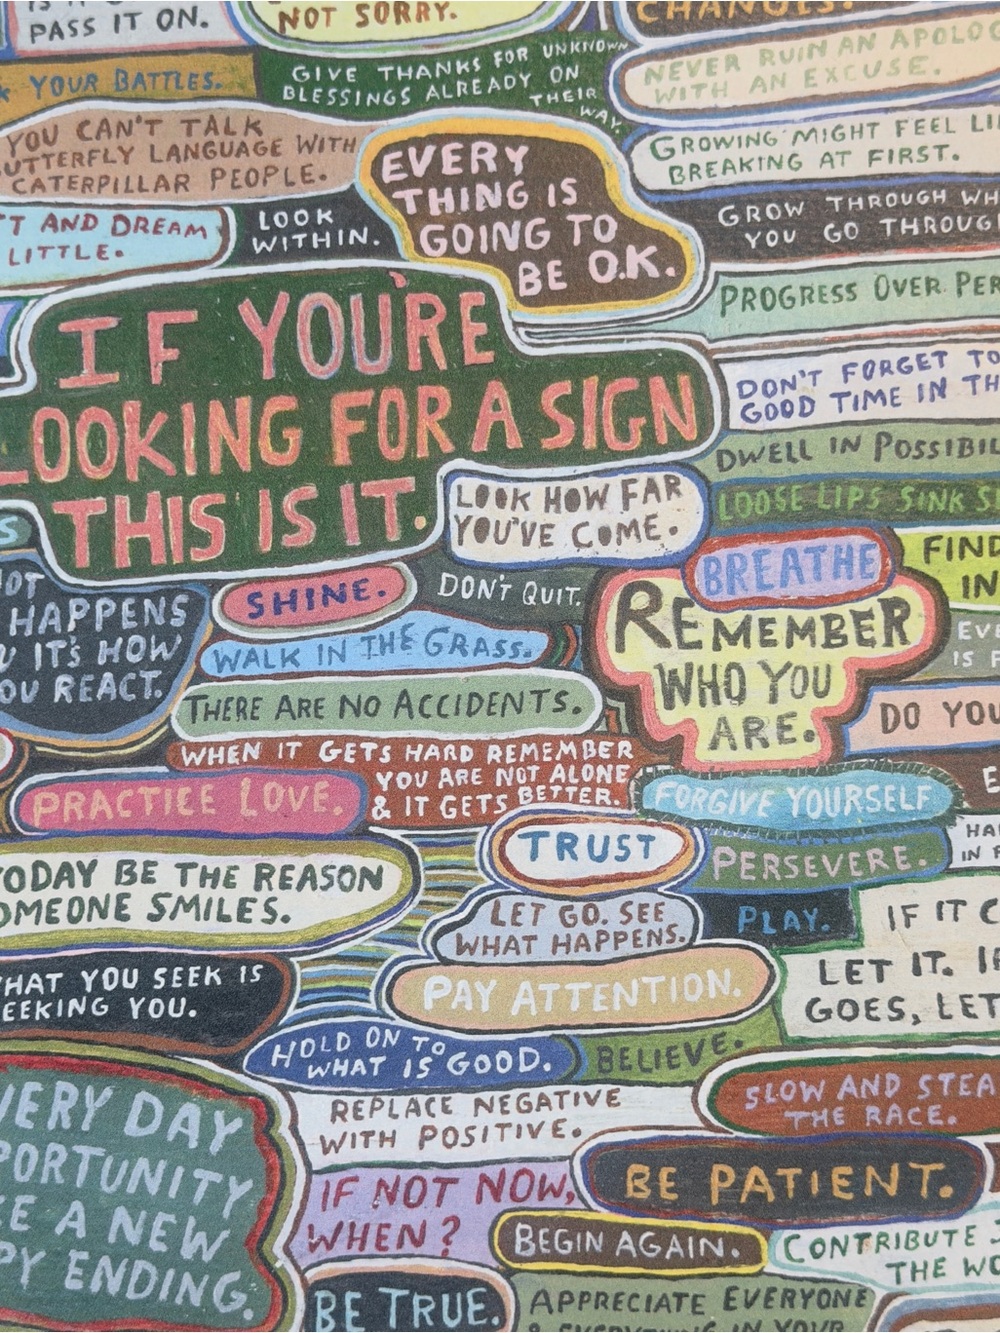 PASS IT ON.
NOT SORRY.
CHANGES.
YOUR BATTLES.
GIVE THANKS FOR UNKNOWN
BLESSINGS ALREADY ON
THEIR
WAY.
NEVER RUIN AN APOLOG
WITH AN EXCUSE.
YOU CAN'T TALK
UTTERFLY LANGUAGE WITH
CATERPILLAR PEOPLE.
EVERY
THING IS
GOING TO
BE O.K.
GROWING MIGHT FEEL LI
BREAKING AT FIRST.
T AND DREAM
LITTLE.
LOOK
WITHIN.
GROW THROUGH WH
YOU GO THROUG
PROGRESS OVER PER
IF YOU'RE
LOOKING FOR A SIGN
THIS IS IT.
DON'T FORGET TO
GOOD TIME IN TH
DWELL IN POSSIBIL
LOOK HOW FAR
YOU'VE COME.
LOOSE LIPS SINK S
S
BREATHE
FIND
IN
OT
HAPPENS
U IT'S HOW
OU REACT.
SHINE.
DON'T QUIT.
REMEMBER
WHO YOU
ARE.
EVE
IS F
WALK IN THE GRASS.
THERE ARE NO ACCIDENTS.
DO YOU
WHEN IT GETS HARD REMEMBER
YOU ARE NOT ALONE
& IT GETS BETTER.
PRACTICE LOVE.
FORGIVE YOURSELF
E
TRUST
PERSEVERE.
HA
IN F
TODAY BE THE REASON
OMEONE SMILES.
LET GO. SEE
WHAT HAPPENS.
PLAY.
IF IT C
LET IT. IF
GOES, LET
HAT YOU SEEK IS
EEKING YOU.
PAY ATTENTION.
HOLD ON TO
WHAT IS GOOD.
BELIEVE.
VERY DAY
PORTUNITY
KE A NEW
PY ENDING.
REPLACE NEGATIVE
WITH POSITIVE.
SLOW AND STEA
THE RACE.
IF NOT NOW,
WHEN?
BE PATIENT.
BEGIN AGAIN.
CONTRIBUTE
THE WO
BE TRUE.
APPRECIATE EVERYONE
& EVERYTHING IN YOUR